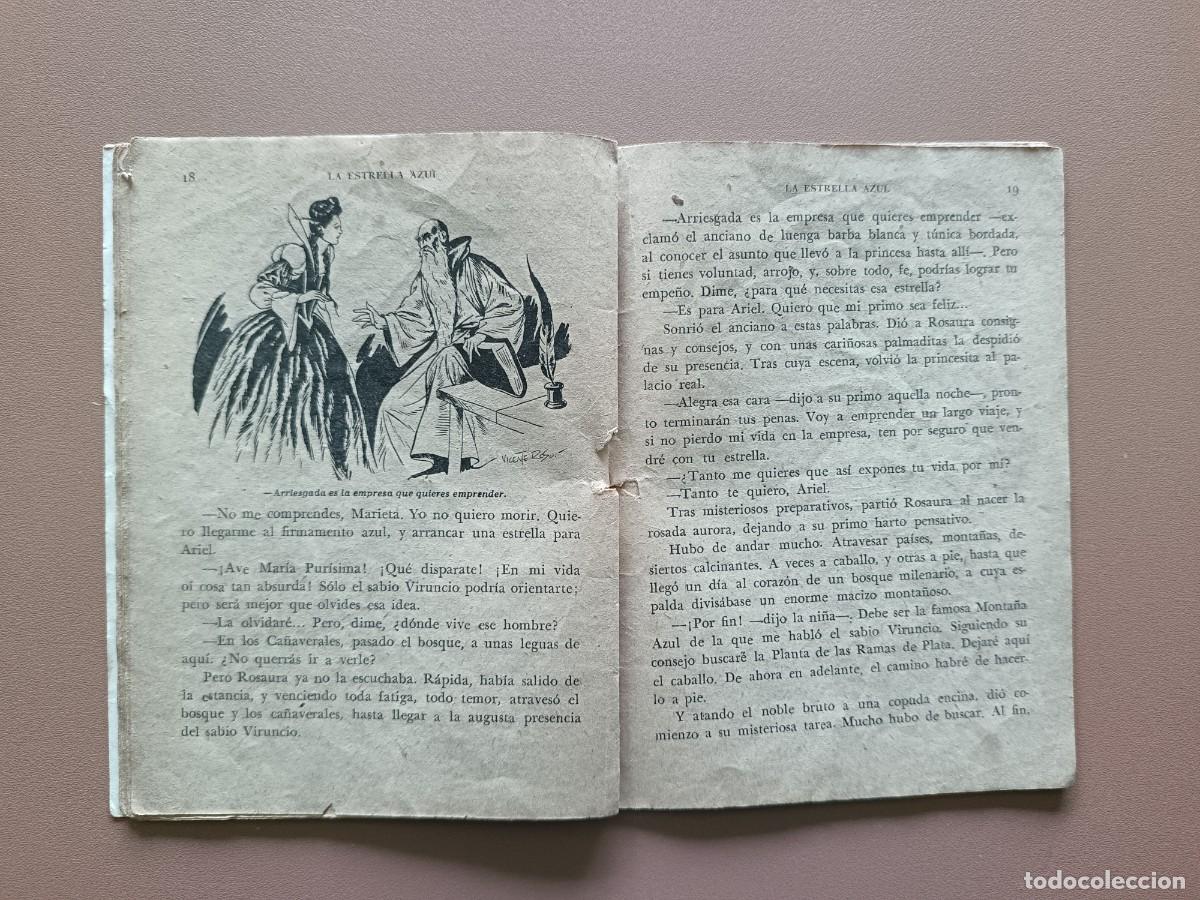 18
LA ESTRELLA AZUL
VICENTE ROSO
—Arriesgada es la empresa que quieres emprender.
—No me comprendes, Marieta. Yo no quiero morir. Quie-
ro llegarme al firmamento azul, y arrancar una estrella para
Ariel.
—¡Ave María Purísima! ¡Qué disparate! ¡En mi vida
oí cosa tan absurda! Sólo el sabio Viruncio podría orientarte;
pero será mejor que olvides esa idea.
—La olvidaré... Pero, dime, ¿dónde vive ese hombre?
—En los Cañaverales, pasado el bosque, a unas leguas de
aquí. ¿No querrás ir a verle?
Pero Rosaura ya no la escuchaba. Rápida, había salido de
la estancia, y venciendo toda fatiga, todo temor, atravesó el
bosque y los cañaverales, hasta llegar a la augusta presencia
del sabio Viruncio.
LA ESTRELLA AZUL
19
—Arriesgada es la empresa que quieres emprender —ex-
clamó el anciano de luenga barba blanca y túnica bordada,
al conocer el asunto que llevó a la princesa hasta allí—. Pero
si tienes voluntad, arrojo, y, sobre todo, fe, podrías lograr tu
empeño. Dime, ¿para qué necesitas esa estrella?
—Es para Ariel. Quiero que mi primo sea feliz...
Sonrió el anciano a estas palabras. Dió a Rosaura consig-
nas y consejos, y con unas cariñosas palmaditas la despidió
de su presencia. Tras cuya escena, volvió la princesita al pa-
lacio real.
—Alegra esa cara —dijo a su primo aquella noche—, pron-
to terminarán tus penas. Voy a emprender un largo viaje, y
si no pierdo mi vida en la empresa, ten por seguro que ven-
dré con tu estrella.
—¿Tanto me quieres que así expones tu vida por mí?
—Tanto te quiero, Ariel.
Tras misteriosos preparativos, partió Rosaura al nacer la
rosada aurora, dejando a su primo harto pensativo.
Hubo de andar mucho. Atravesar países, montañas, de-
siertos calcinantes. A veces a caballo, y otras a pie, hasta que
llegó un día al corazón de un bosque milenario, a cuya es-
palda divisábase un enorme macizo montañoso.
—¡Por fin! —dijo la niña—. Debe ser la famosa Montaña
Azul de la que me habló el sabio Viruncio. Siguiendo su
consejo buscaré la Planta de las Ramas de Plata. Dejaré aquí
el caballo. De ahora en adelante, el camino habré de hacer-
lo a pie.
Y atando el noble bruto a una copuda encina, dió co-
mienzo a su misteriosa tarea. Mucho hubo de buscar. Al fin,
todocoleccion